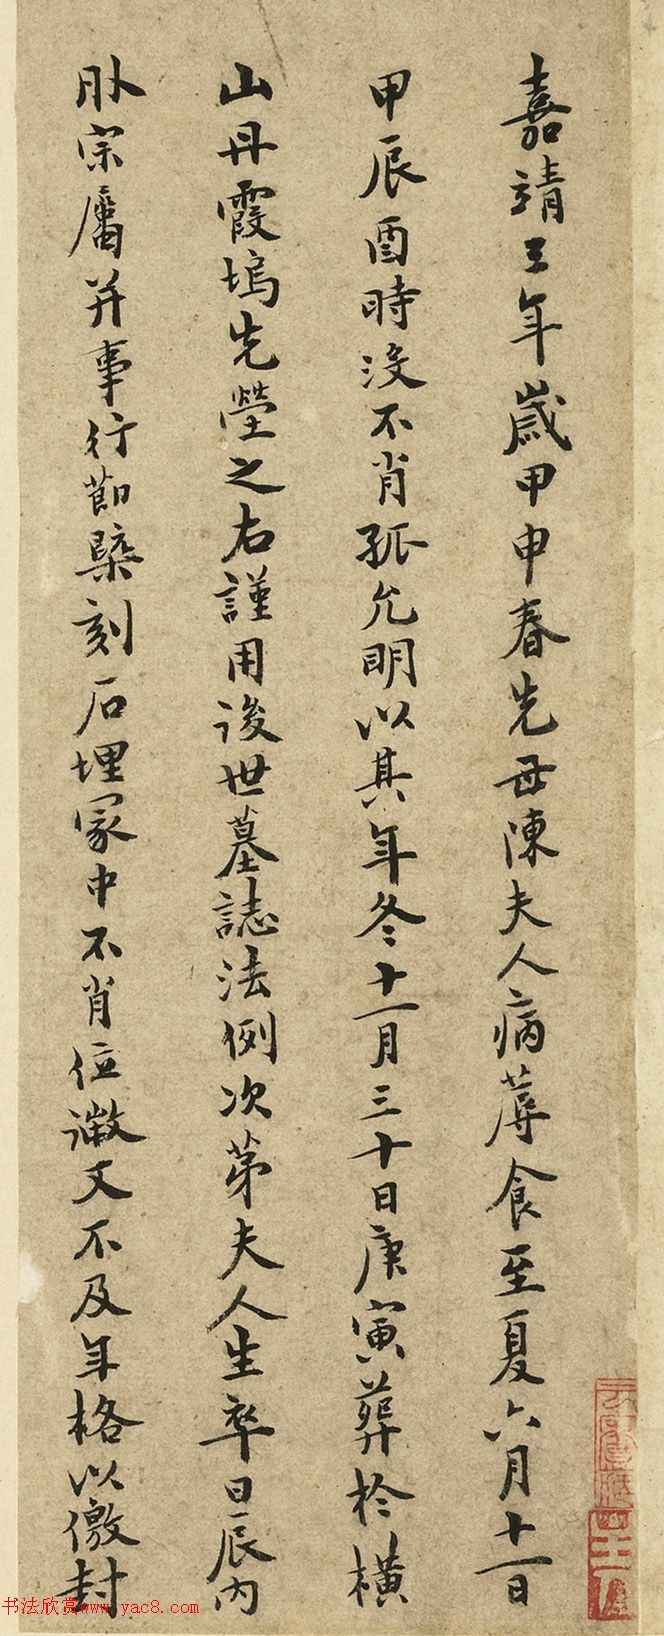 嘉靖三年歲甲申春先母陳夫人病蓐食至夏六月十一日
甲辰酉時沒不肖孤允明以其年冬十一月三十日庚寅葬於橫
山丹霞塢先塋之右謹用後世墓誌法例次第夫人生卒日辰內
外宗屬并事行節槩刻石埋冢中不肖位澉文不及年格以儌封
书法欣赏www.yac8.com